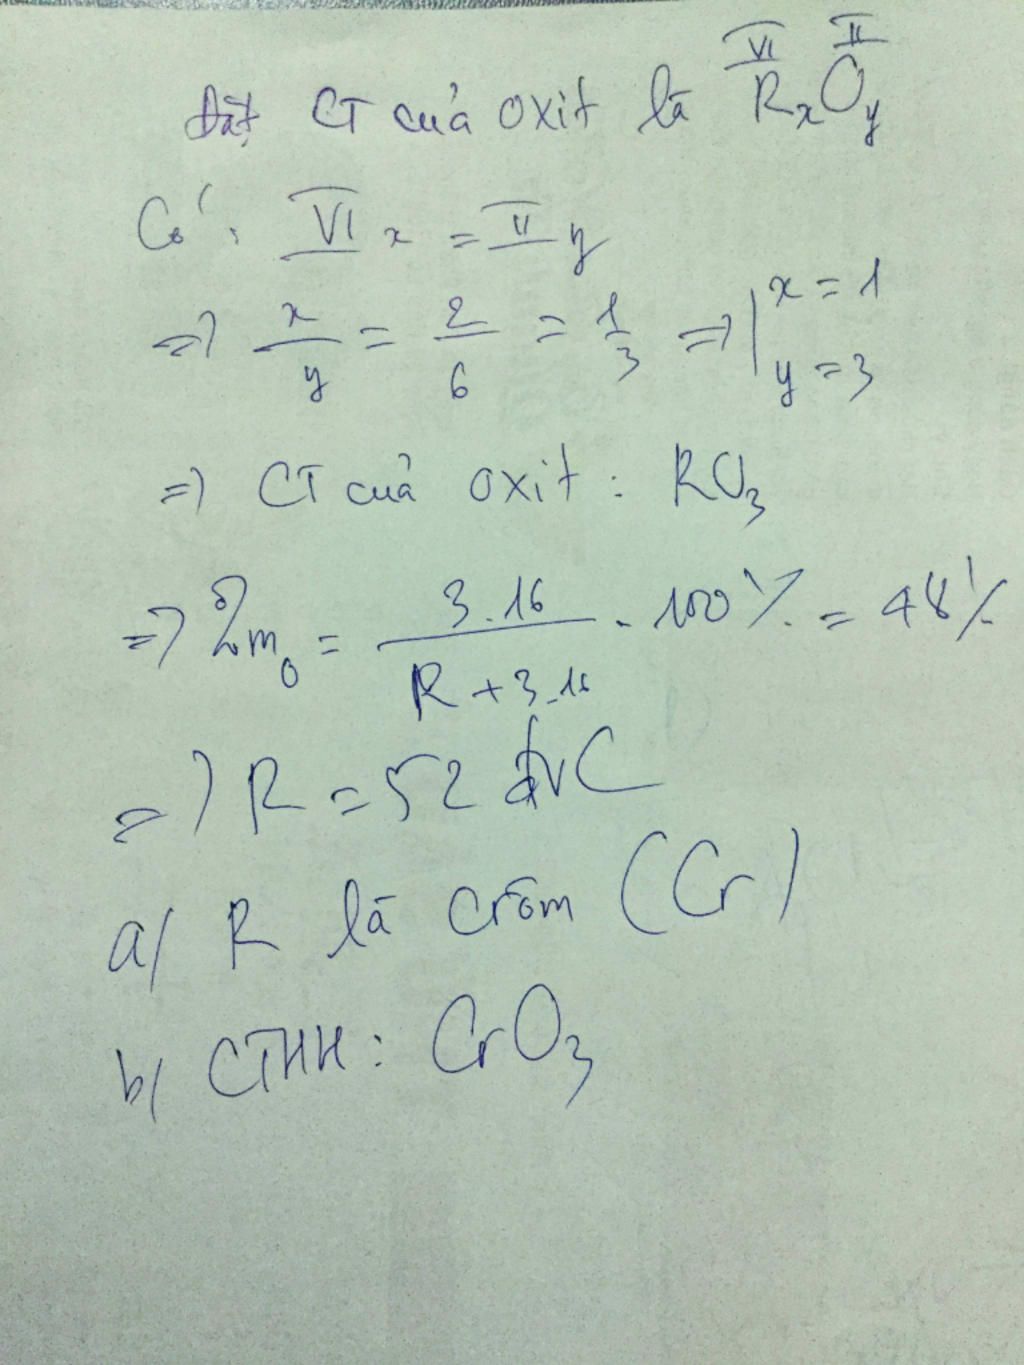 Đặt CT của oxit là RxOy
VI II
Có: VI x = II y
=> x/y = 2/6 = 1/3 => | x = 1 y = 3
=> CT của oxit: RO3
=> %mO = 3.16 / (R + 3.16) . 100% = 48%
=> R = 52 đvC
a/ R là crôm (Cr)
b/ CTHH: CrO3